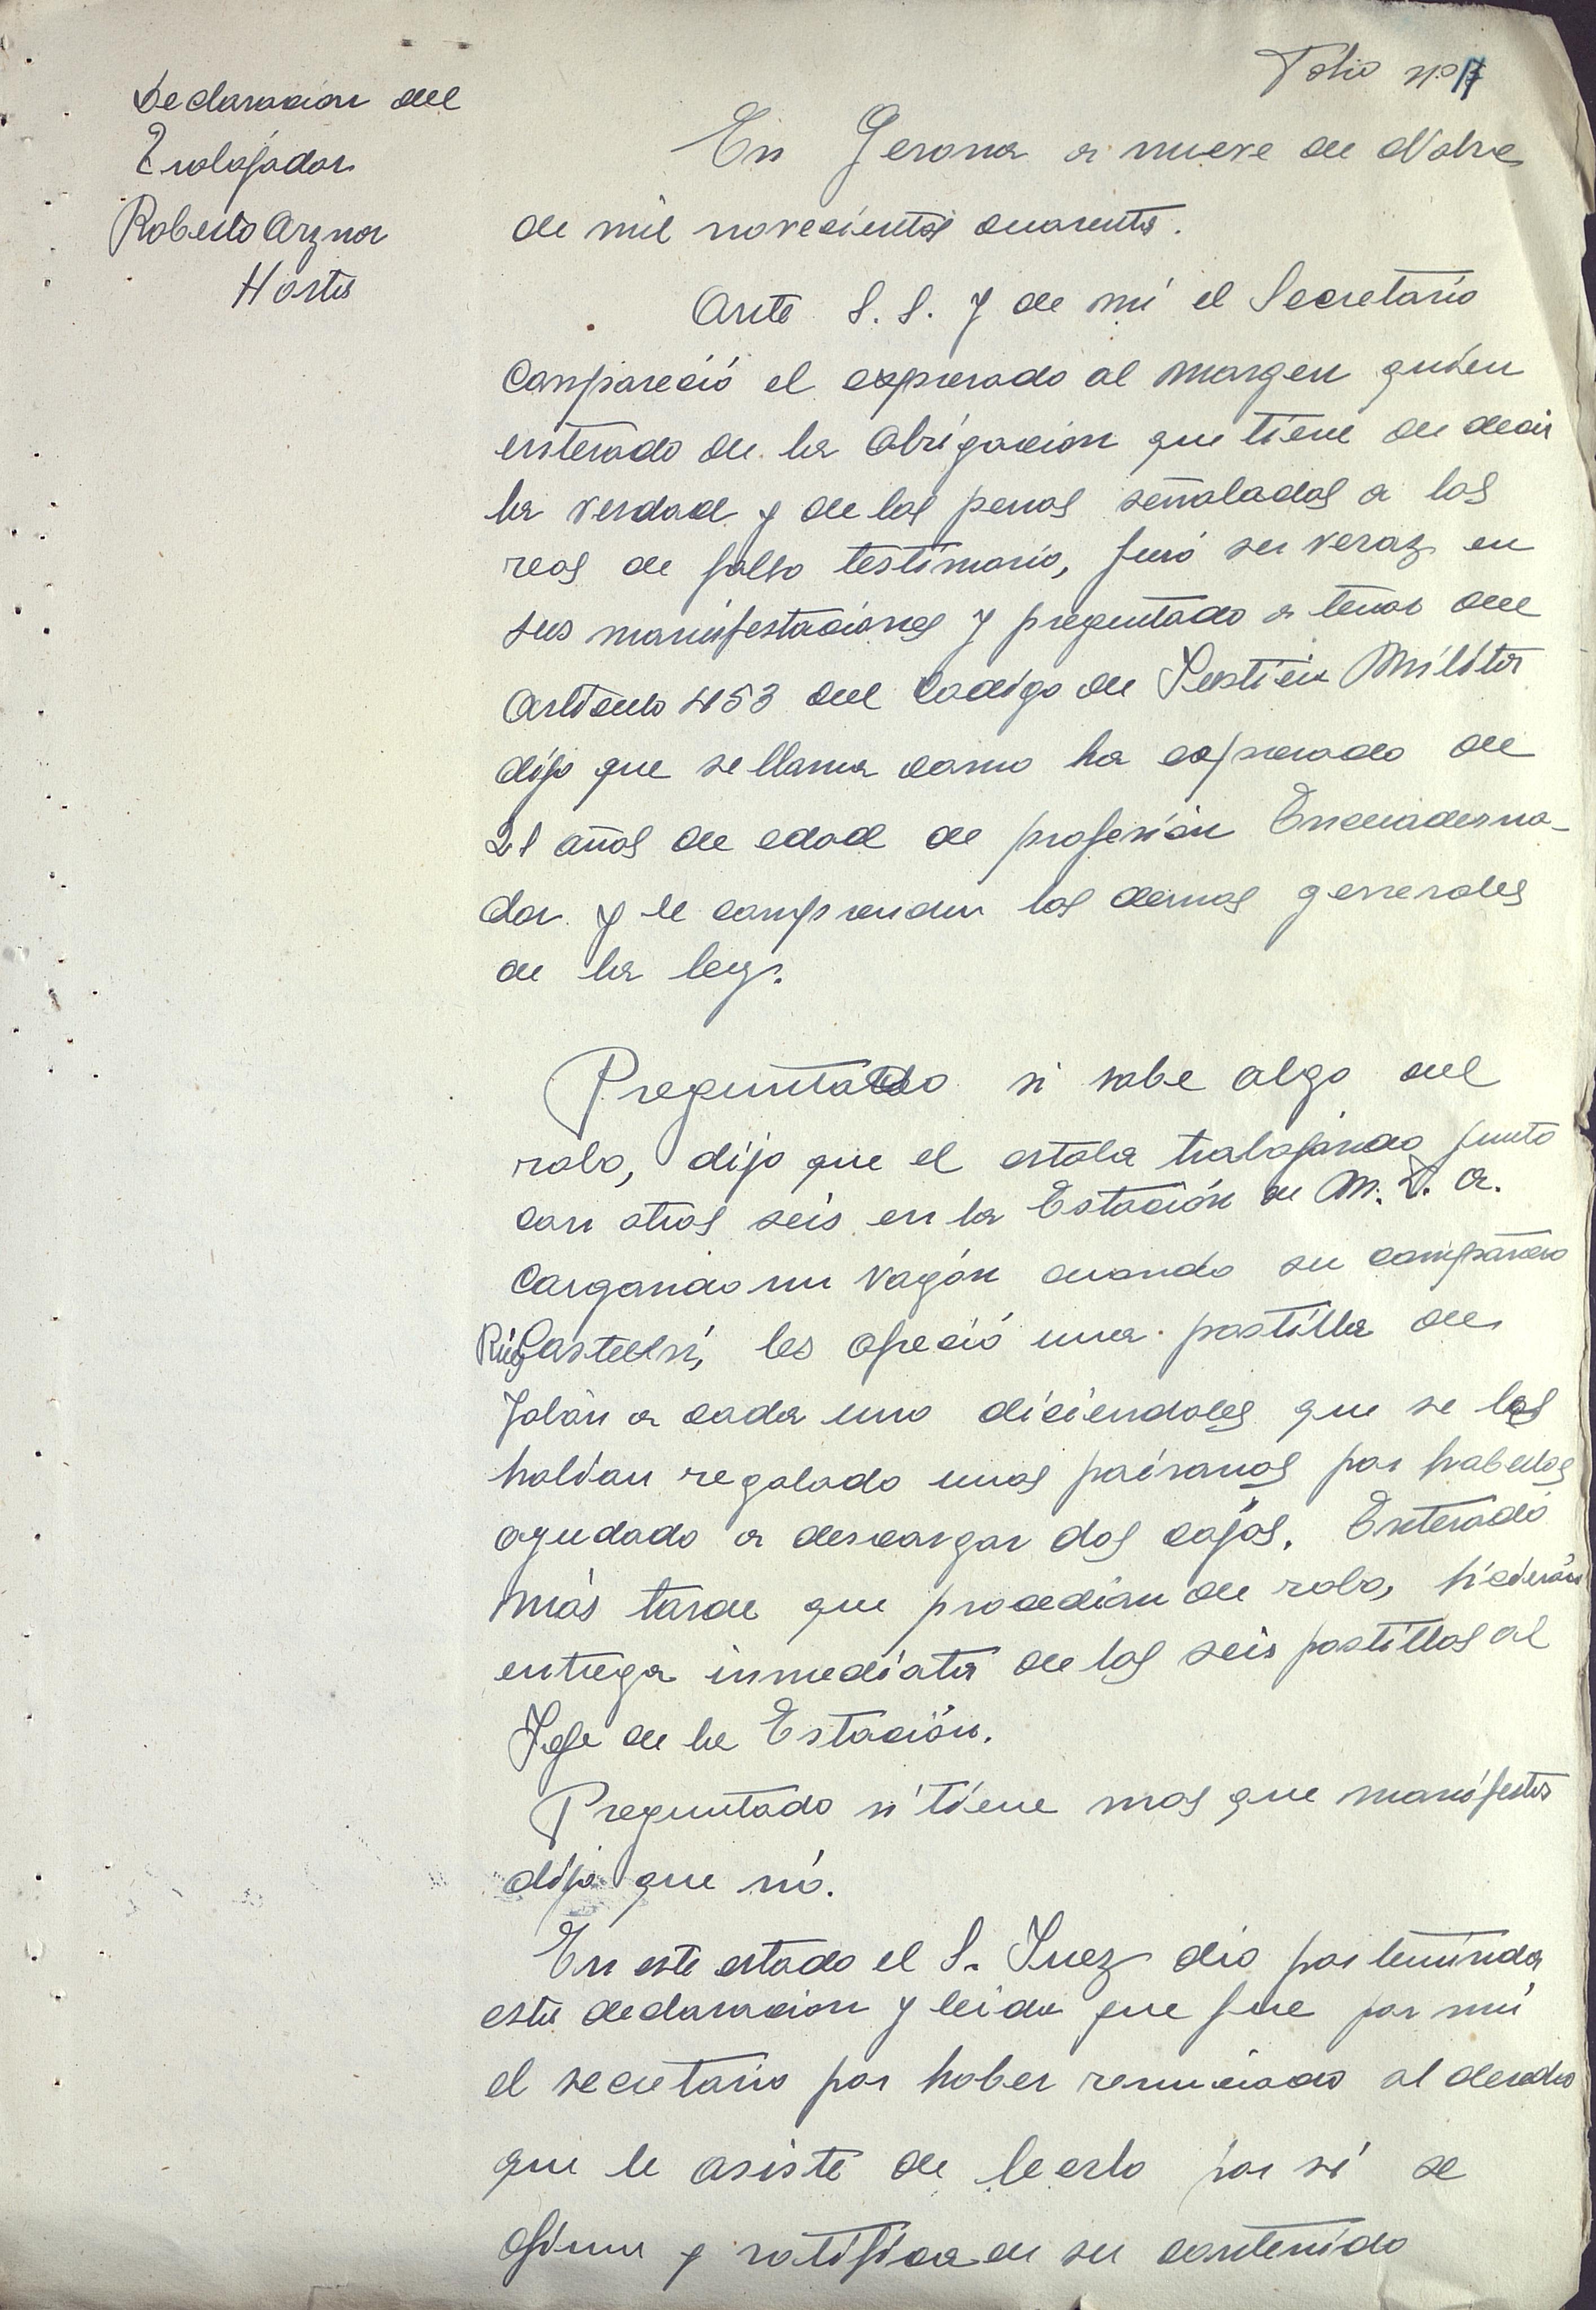 Folio nº 17
Declaracion del
Trabajador
Roberto Aznar
Hostis
En Gerona a nueve de Nobre
de mil novecientos cuarenta.
Ante S. S. y de mi el Secretario
Compareció el expresado al margen quien
enterado de la Obligacion que tiene de decir
la verdad y de las penas señaladas a los
reos de falso testimonio, juró ser veraz en
sus manifestaciones y preguntado a tenor del
Articulo 453 del Codigo de Justicia Militar
dijo que se llama como ha expresado de
21 años de edad de profesión Encuaderna-
dor y le comprenden las demas generales
de la ley.
Preguntado si sabe algo del
robo, dijo que el estaba trabajando junto
con otros seis en la Estación de M. Z. A.
Cargando un vagón cuando su compañero
Ruiz Castelví, les ofreció una pastilla de
Jabón a cada uno diciendoles que se las
habian regalado unos paisanos por haberlos
ayudado a descargar dos cajas. Enterado
más tarde que procedian de robo, hicieron
entrega inmediata de las seis pastillas al
Jefe de la Estación.
Preguntado si tiene mas que manifestar
dijo que nó.
En este estado el S. Juez dio por terminda
esta declaracion y leida que fue por mi
el secretario por haber renunciado al derecho
que le asiste de leerla por sí se
afirma y ratifica en su contenido